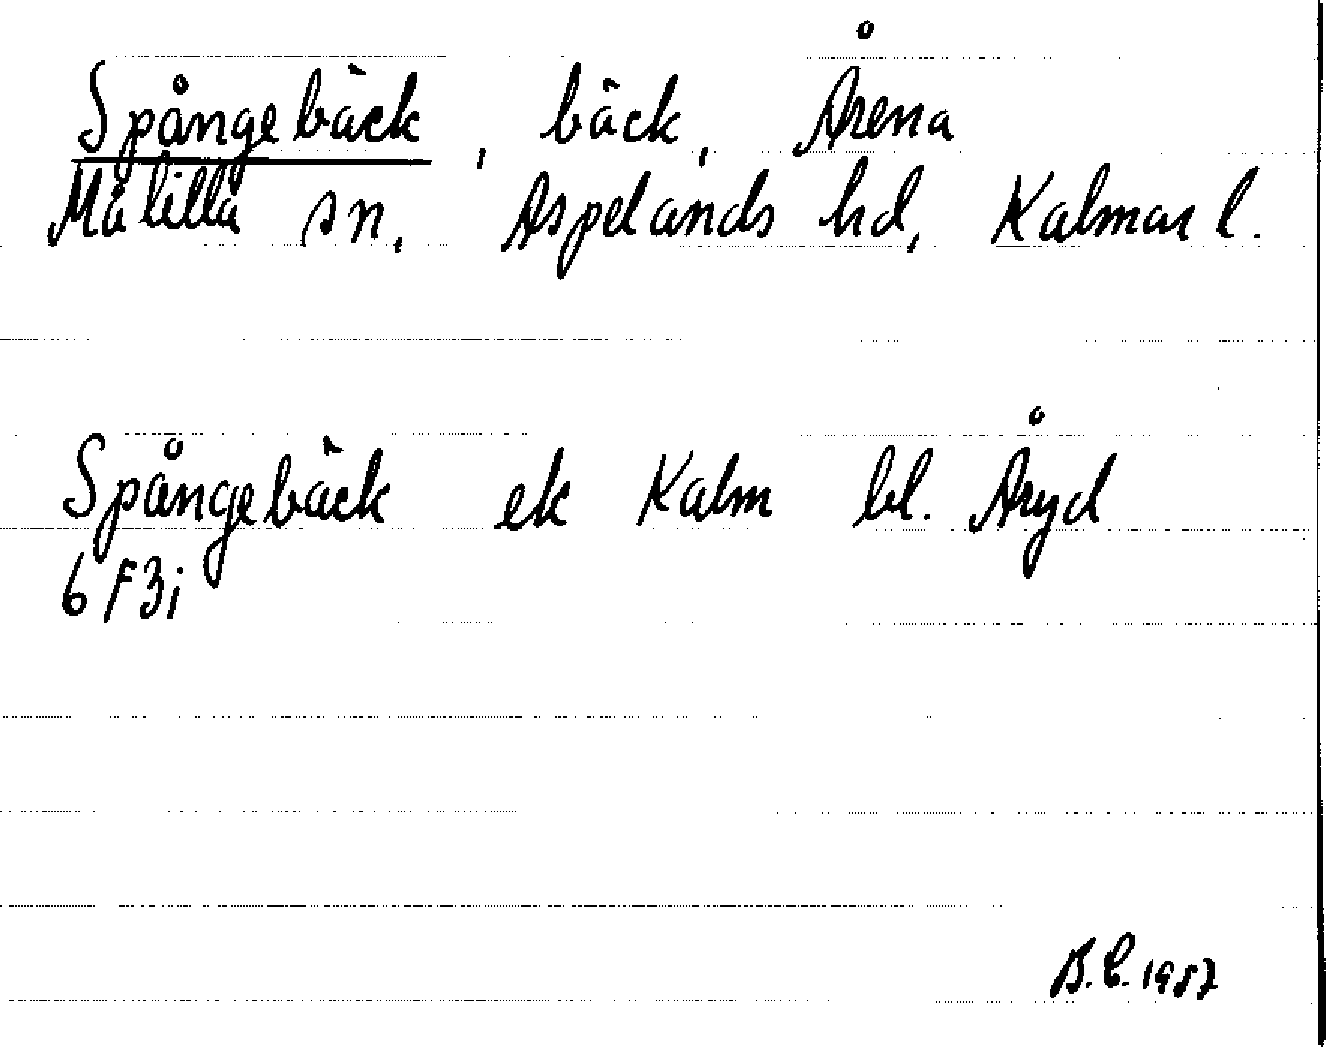 Spångebäck, bäck, Årena
Målilla sn, Aspelands hd, Kalmar l.
Spångebäck ek Kalm bl. Åryd
6 F3i
B.C. 1987